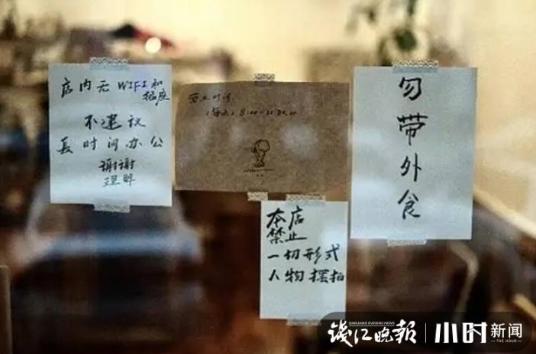 店内无 WIFI 和
插座
不建议
长时间办公
谢谢
理解
营业时间
勿带外食
本店
禁止
一切形式
人物摆拍
钱江晚报
小时新闻